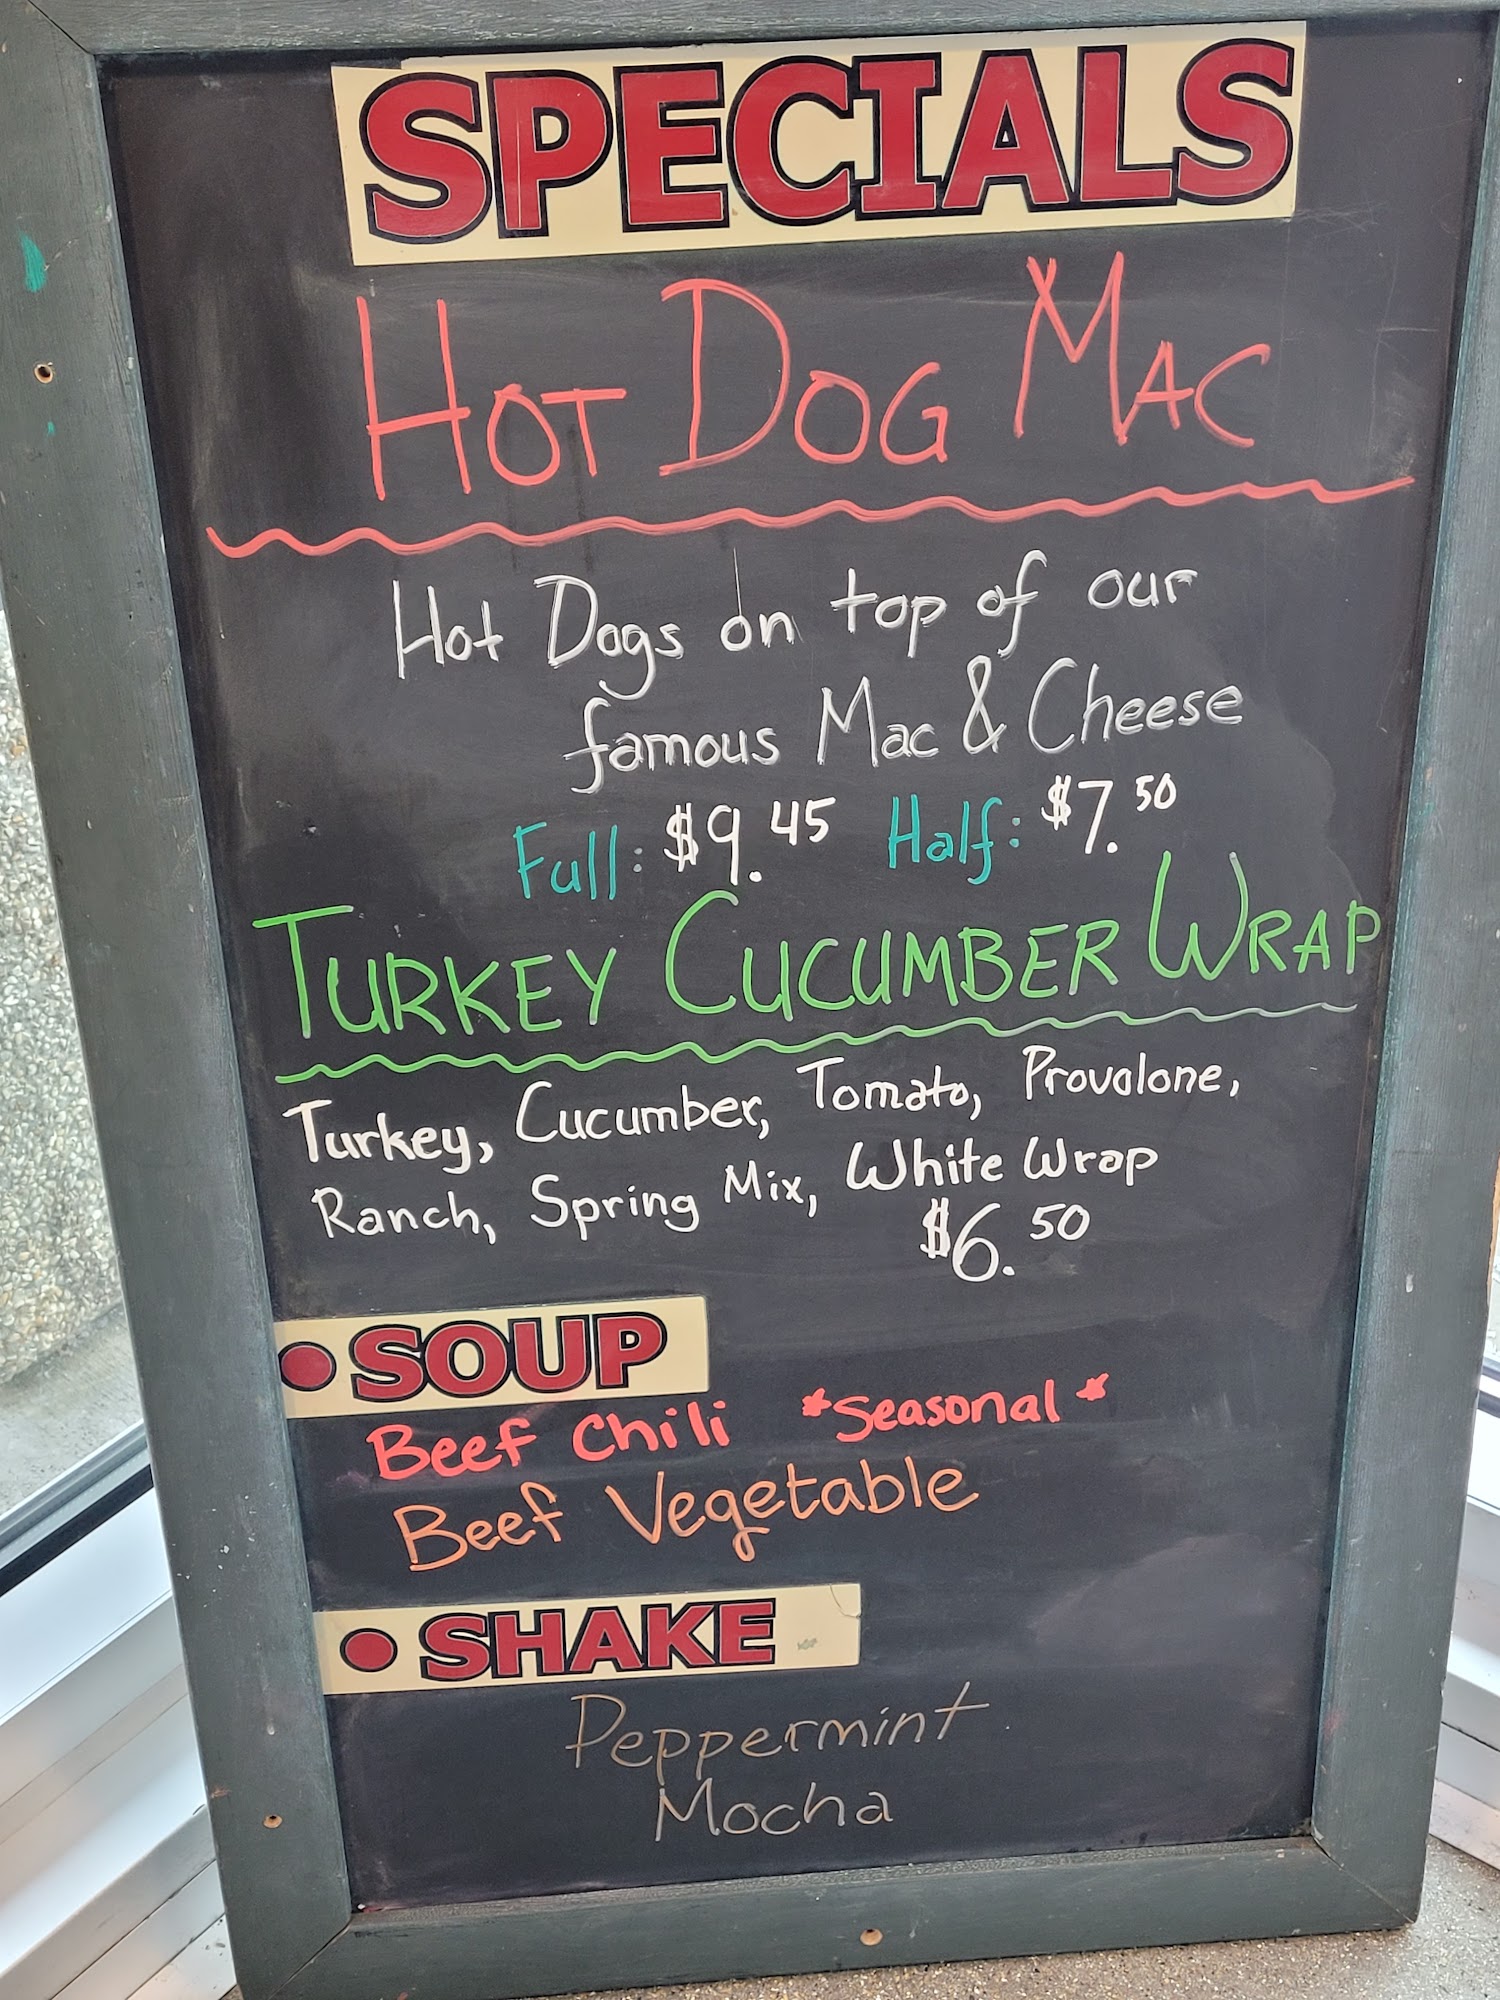 SPECIALS
HOT DOG MAC
Hot Dogs on top of our
famous Mac & Cheese
Full: $9.45 Half: $7.50
TURKEY CUCUMBER WRAP
Turkey, Cucumber, Tomato, Provolone,
Ranch, Spring Mix, White Wrap
$6.50
• SOUP
Beef Chili *Seasonal*
Beef Vegetable
• SHAKE
Peppermint
Mocha